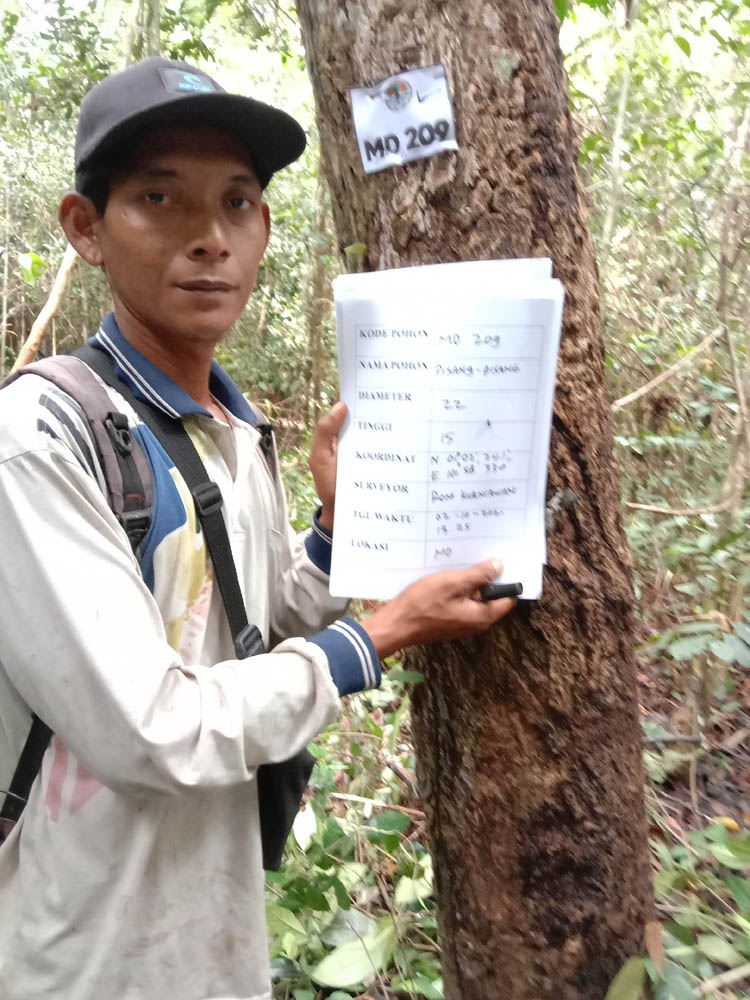 MD 209
KODE POHON MD 209
NAMA POHON PISANG-PISANG
DIAMETER 22
TINGGI 15
KOORDINAT N 0°02'.241"
E 10°58'330
SURVEYOR RONI KURNIAWAN
TGL/WAKTU 02-10-2021
13.25
LOKASI MD